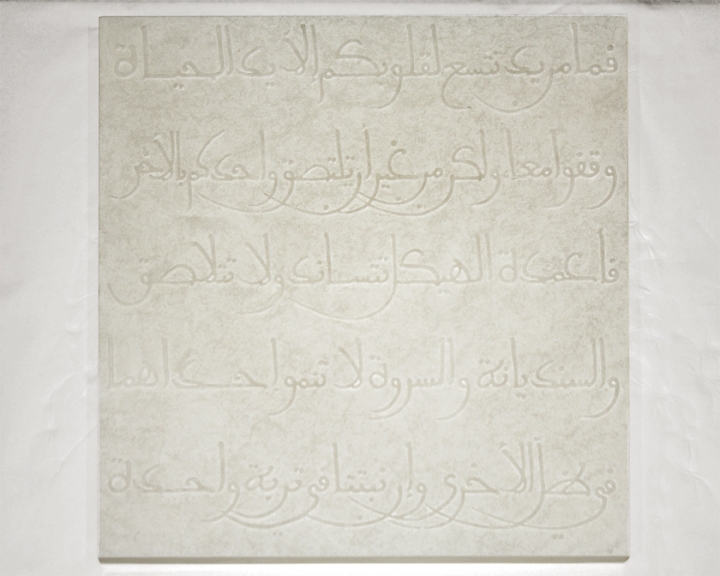 فما من يد تتسع لقلوبكم إلا يد الحياة
وقفوا معا ولكن من غير أن يلتصق واحدكم بالآخر
فأعمدة الهيكل تتساند ولا تتلاصق
والسنديانة والسروة لا تنموا حداهما
في ظل الأخرى وإن نبتتا في تربة واحدة